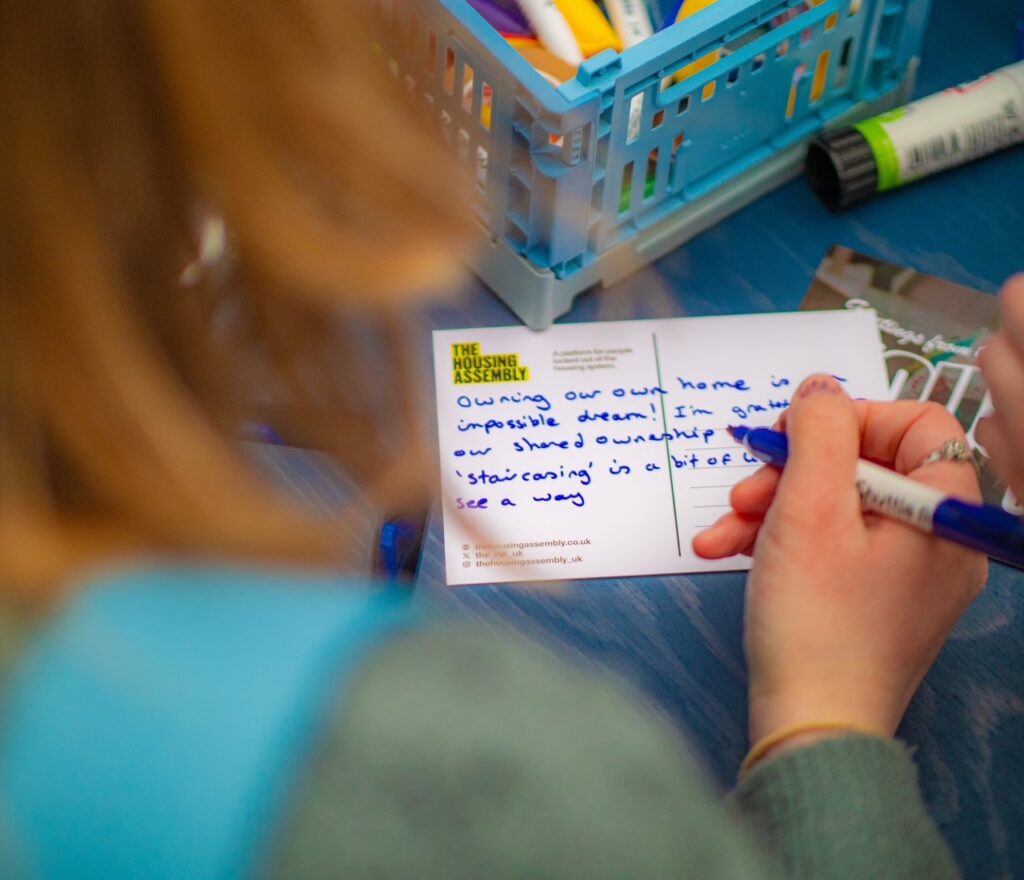 THE
HOUSING
ASSEMBLY
A platform for people
locked out of the
housing system.
owning our own home is
impossible dream! I'm
our shared ownership
'staircasing' is a bit of
see a way
thehousingassembly.co.uk
the_HA_uk
thehousingassembly_uk
Greetings from